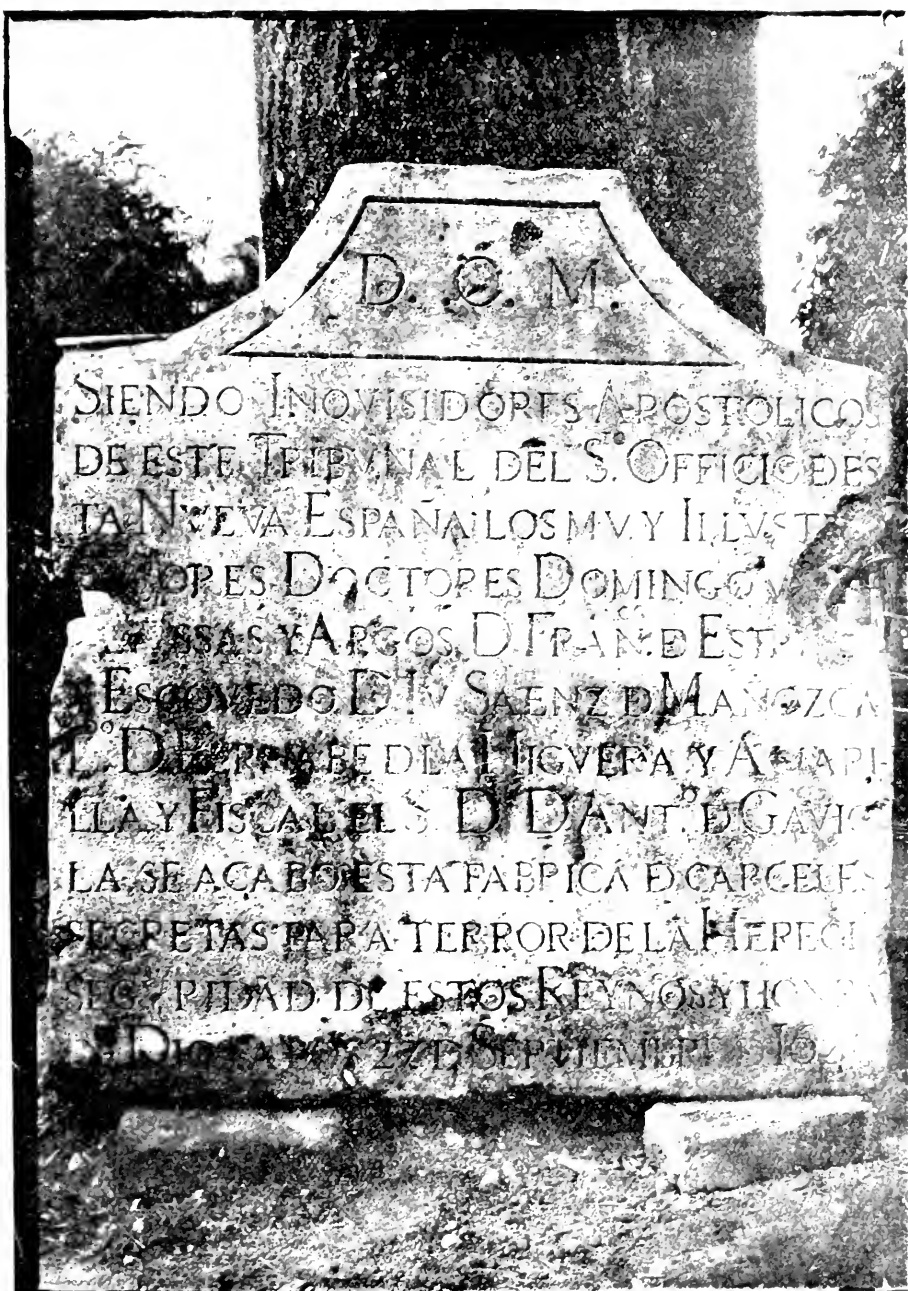 D. O. M.
SIENDO INQVISIDORES APOSTOLICOS
DE ESTE TRIBVNAL DEL S.TO OFFICIO DES
TA NVEVA ESPAÑA LOS MVY ILLVST
ORES DOCTORES DOMINGO
ASSAS Y ARGOS D. FRAN.CO D EST
ESCOVEDO D. IV SAENZ D MAÑOZCA
L.DO D. BERNABE D LA HIGVERA Y AMARI
LLA. Y FISCAL EL S.R D.R D ANT.O D GAVIO
LA. SE ACABO ESTA FABRICA D CARCELES
SECRETAS PARA TERROR DE LA HEREGI
SEGVRIDAD DE ESTOS REYNOS Y HONRA
DIOS 27 D SEPTIEMBRE 16